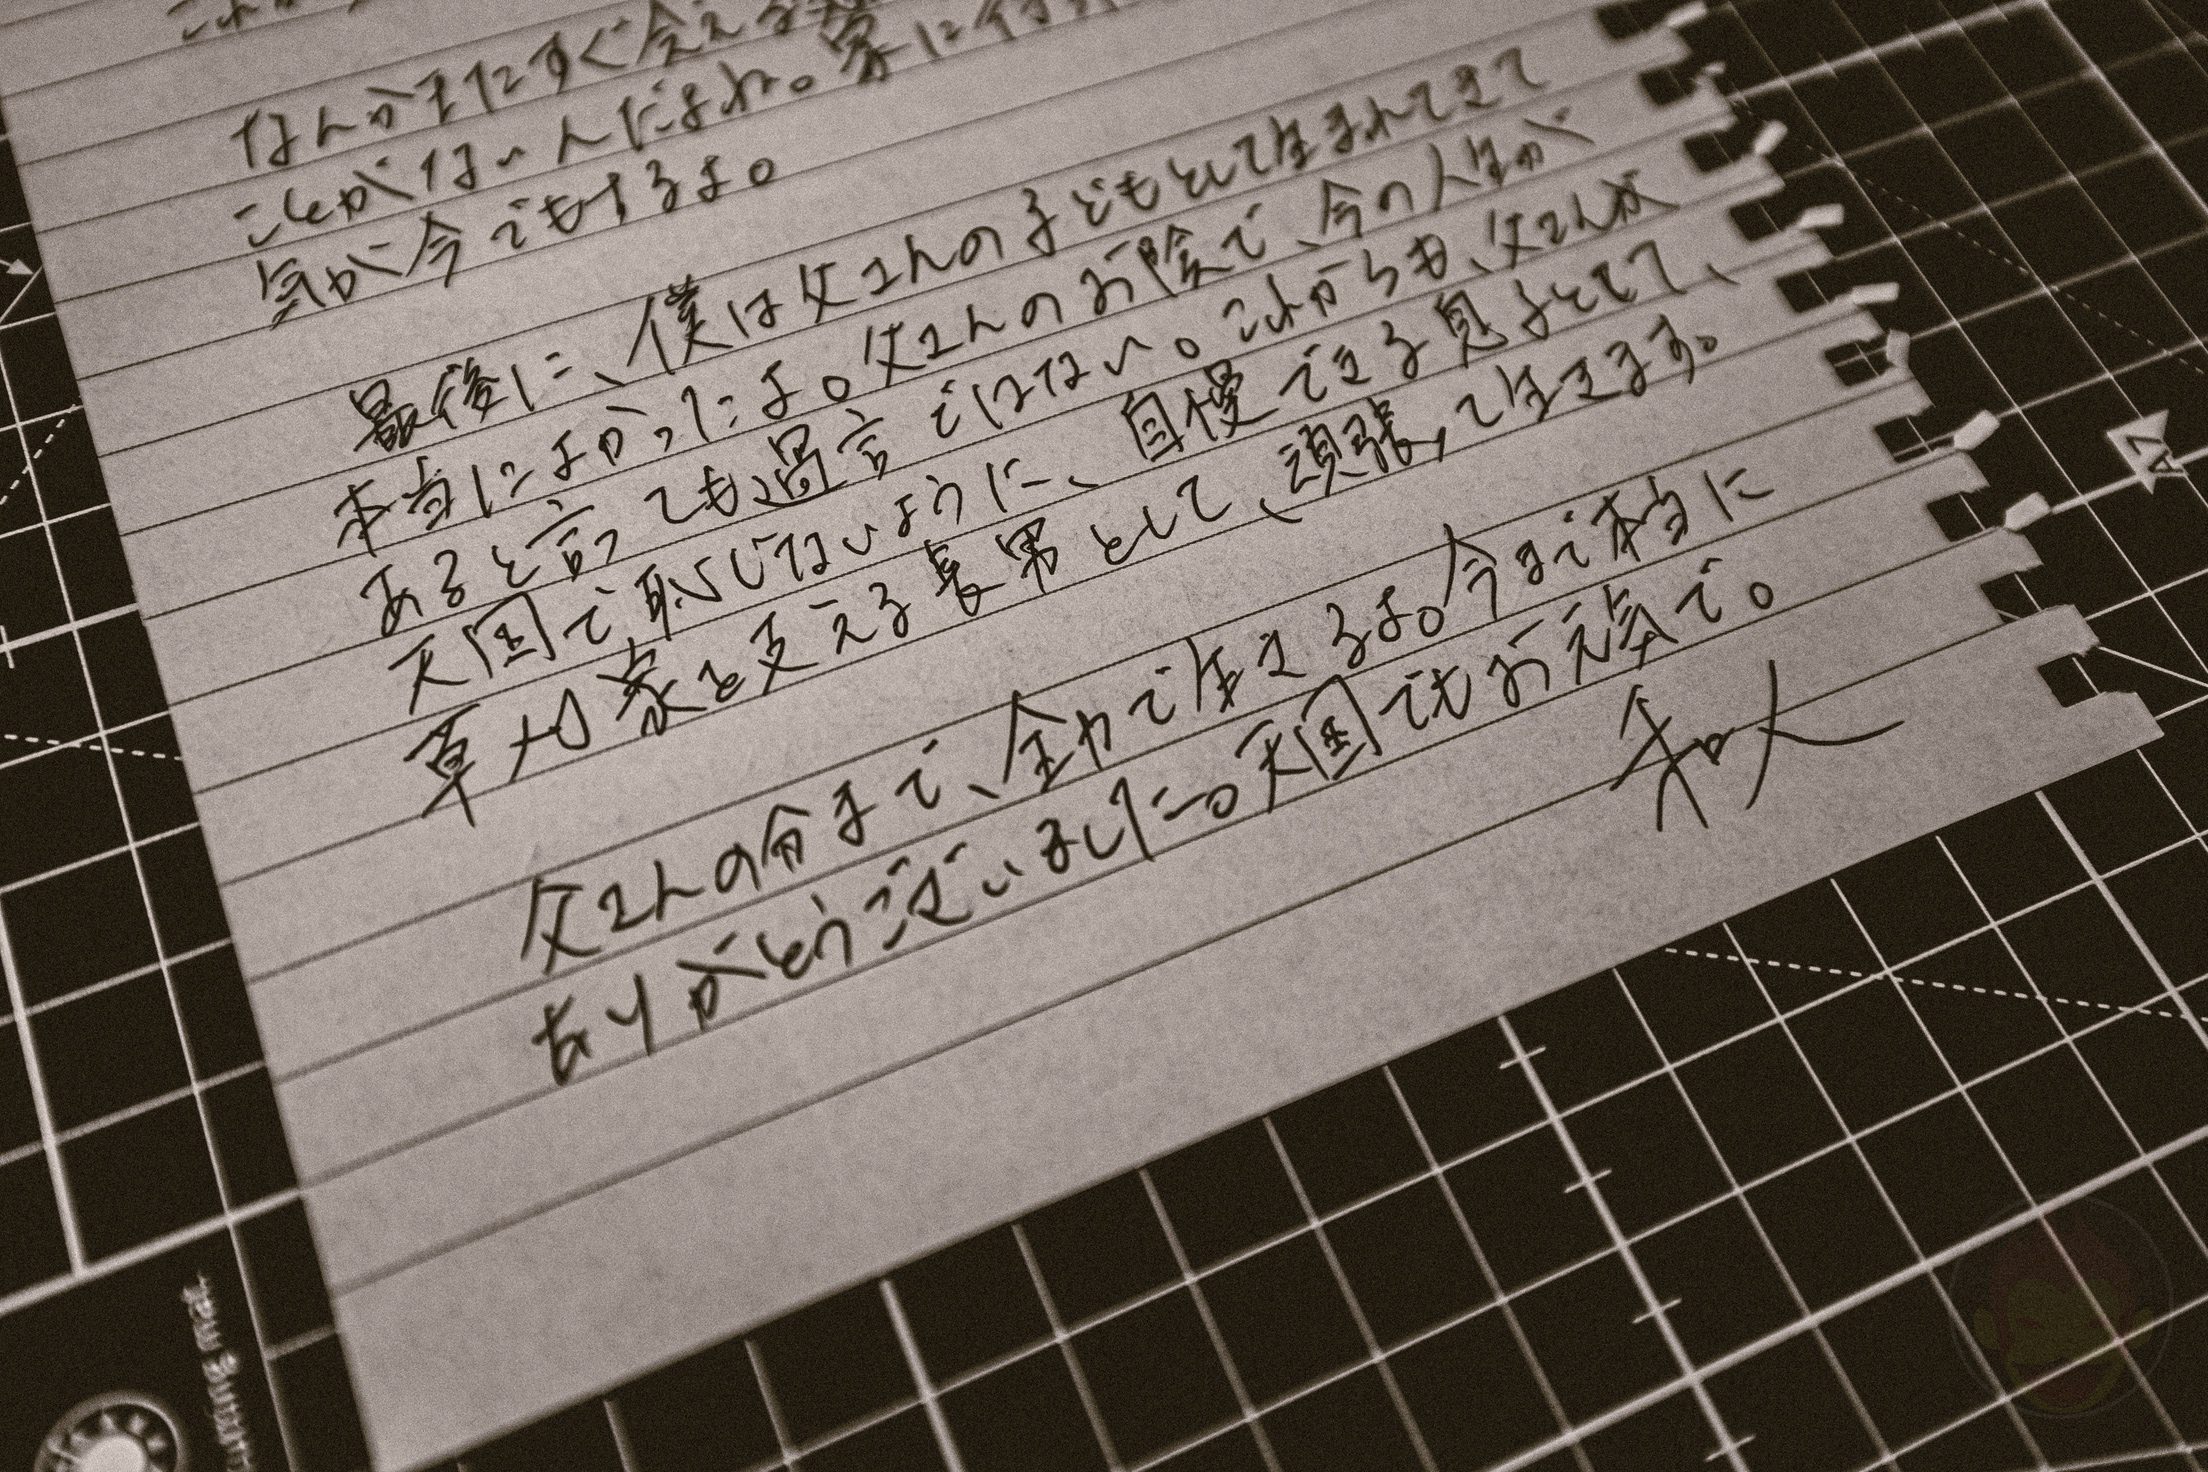 なんかまたすぐ会える
ことがない人だよね。家に行
気が今でもするよ。
最後に、僕は父さんの子どもとして生まれてきて
本当によかったよ。父さんのお陰で、今の人生が
あると言っても過言ではない。これからも、父さんが
天国で恥じないように、自慢できる息子として、
草刈家を支える長男として、頑張って生きます。
父さんの分まで、全力で生きるよ。今まで本当に
ありがとうございました。天国でもお元気で。
和人
A7